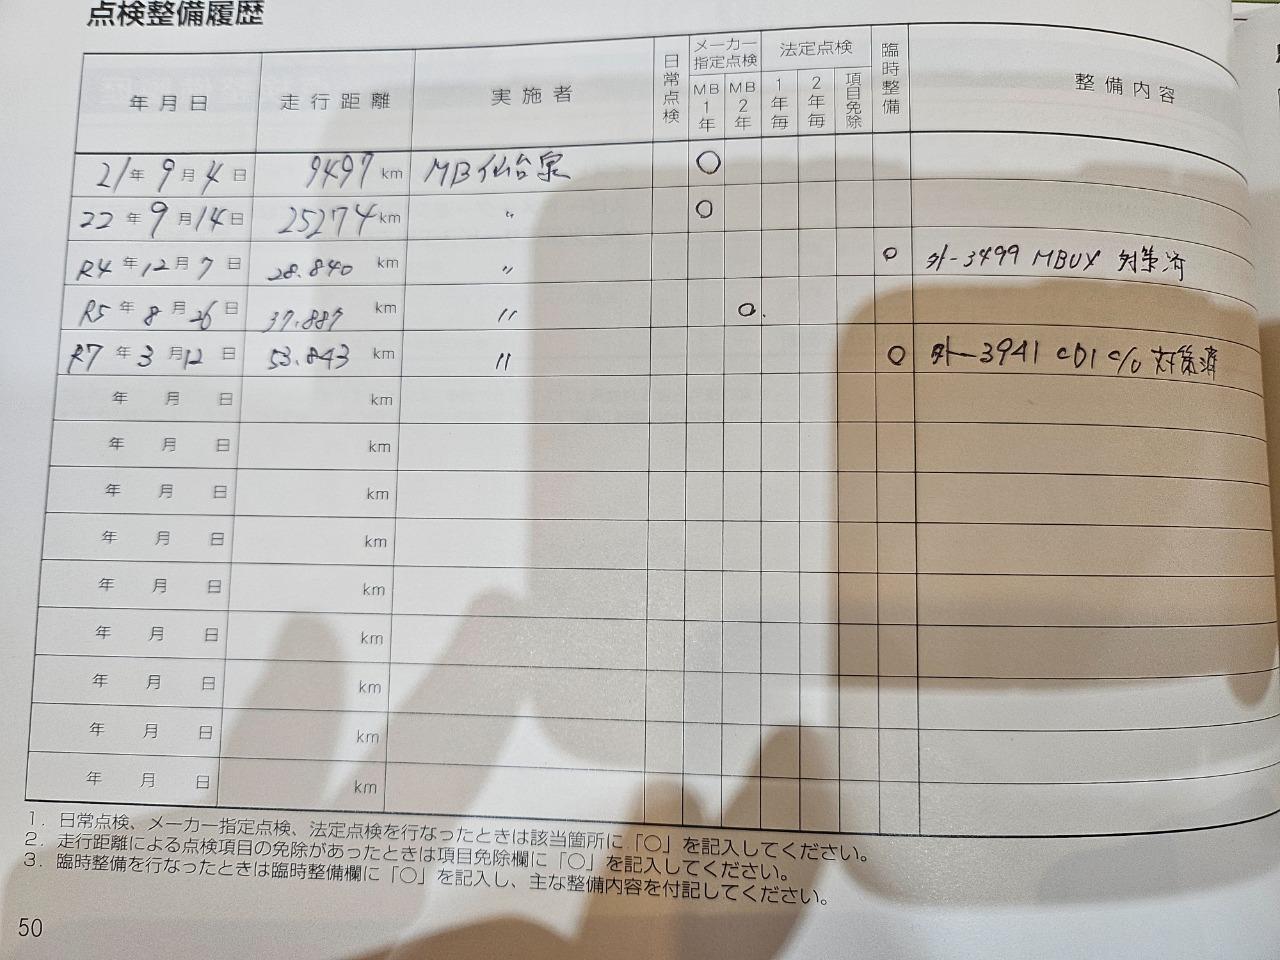 点検整備履歴
年月日 走行距離 実施者 日常点検 メーカー指定点検 MB1年 MB2年 法定点検 1年毎 2年毎 項目免除 臨時整備 整備内容
21年 9月 4日 9497 km MB仙台泉 ○
22年 9月 14日 25274 km 〃 ○
R4年 12月 7日 28.840 km 〃 ○ 外-3499 MBUX 対策済
R5年 8月 26日 37.887 km 〃 ○
R7年 3月 12日 53.843 km 〃 ○ 外-3941 CDI C/U 対策済
年 月 日 km
年 月 日 km
年 月 日 km
年 月 日 km
年 月 日 km
年 月 日 km
年 月 日 km
年 月 日 km
年 月 日 km
1. 日常点検、メーカー指定点検、法定点検を行なったときは該当箇所に「○」を記入してください。
2. 走行距離による点検項目の免除があったときは項目免除欄に「○」を記入してください。
3. 臨時整備を行なったときは臨時整備欄に「○」を記入し、主な整備内容を付記してください。
50